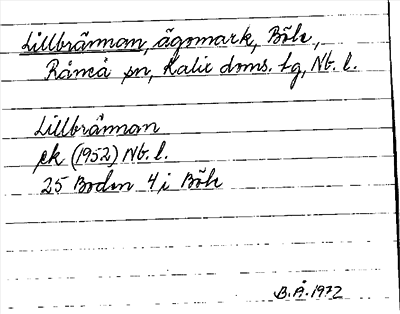 Lillbrännan, ägomark, Böle,
Råneå sn, Kalix doms. tg, Nb. l.
Lillbrännan
ek (1952) Nb. l.
25 Boden 4 i Böle
B.Å. 1972